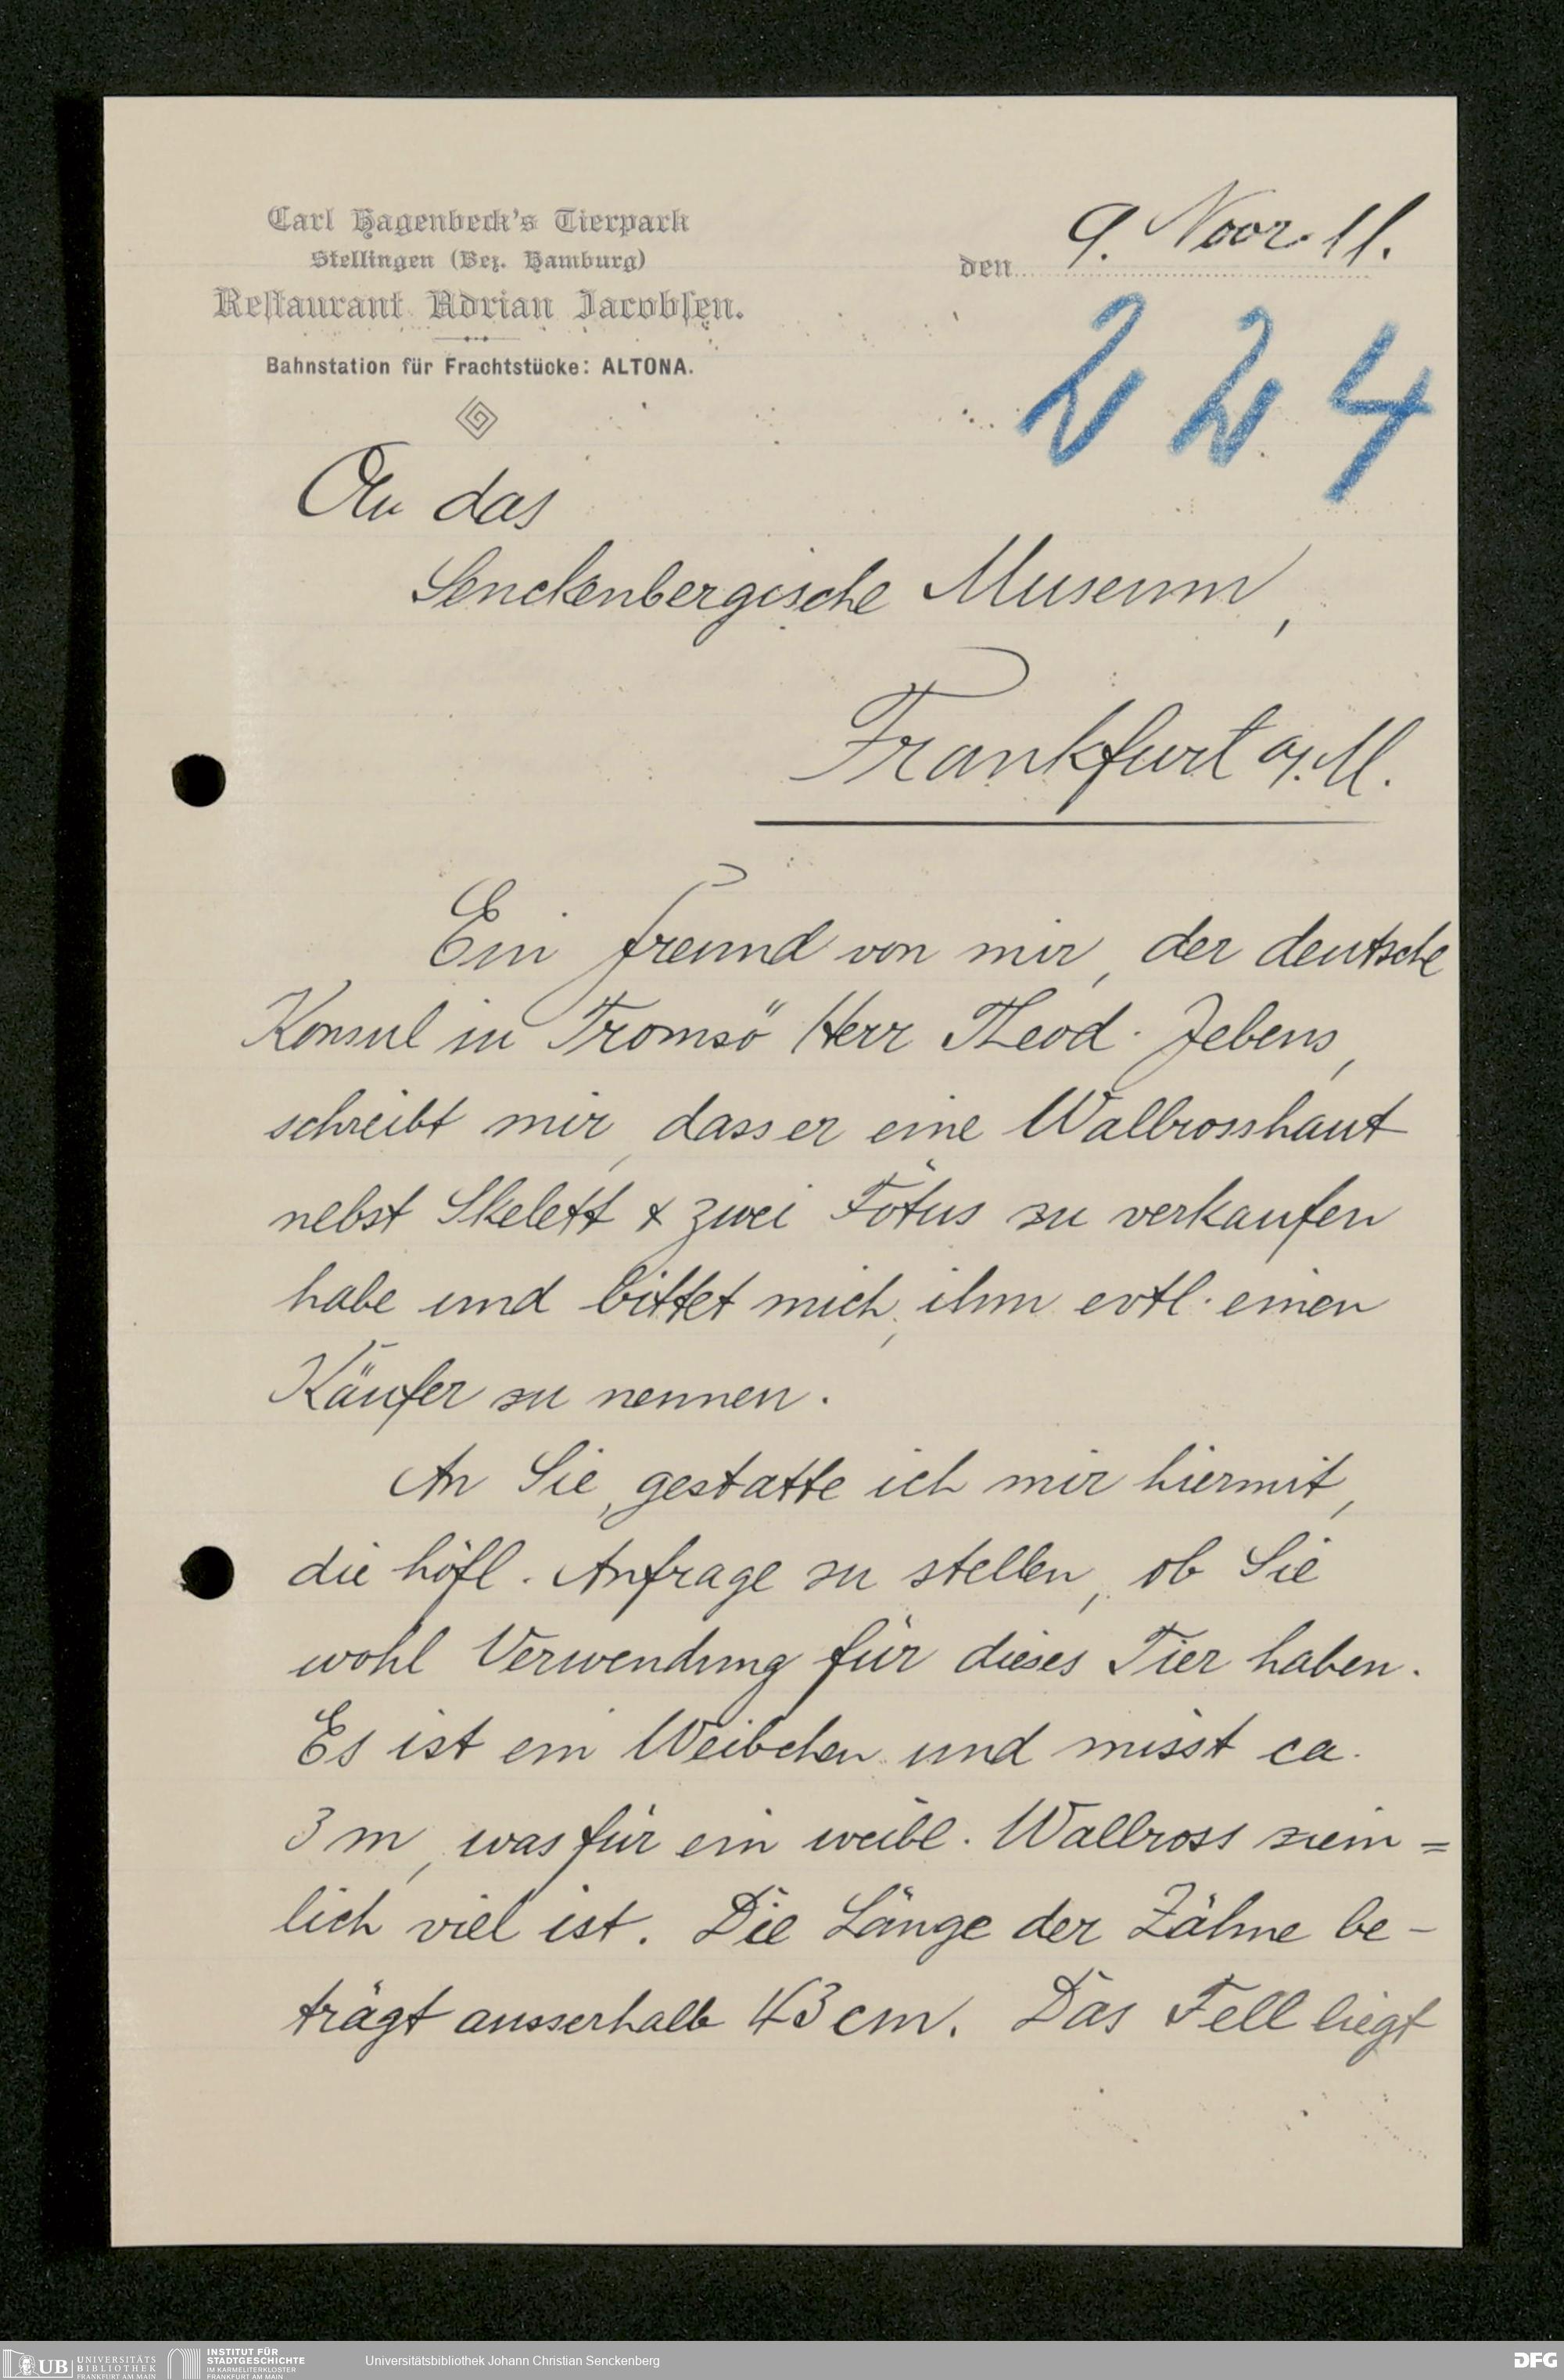 Carl Hagenbeck's Tierpark
Stellingen (Bez. Hamburg)
Restaurant Adrian Jacobsen.
Bahnstation für Frachtstücke: ALTONA.
den 9. Novr. 11.
224
An das
Senckenbergische Museum,
Frankfurt a/M.
Ein Freund von mir, der deutsche
Konsul in Tromsö Herr Theod. Jebens,
schreibt mir, dass er eine Wallrosshaut
nebst Skelett & zwei Fötus zu verkaufen
habe und bittet mich, ihm evtl. einen
Käufer zu nennen.
An Sie, gestatte ich mir hiermit,
die höfl. Anfrage zu stellen, ob Sie
wohl Verwendung für dieses Tier haben.
Es ist ein Weibchen und misst ca.
3 m, was für ein weibl. Wallross ziem=
lich viel ist. Die Länge der Zähne be-
trägt ausserhalb 43 cm. Das Fell liegt
UB UNIVERSITÄTS
BIBLIOTHEK
FRANKFURT AM MAIN
INSTITUT FÜR
STADTGESCHICHTE
IM KARMELITERKLOSTER
FRANKFURT AM MAIN
Universitätsbibliothek Johann Christian Senckenberg
DFG